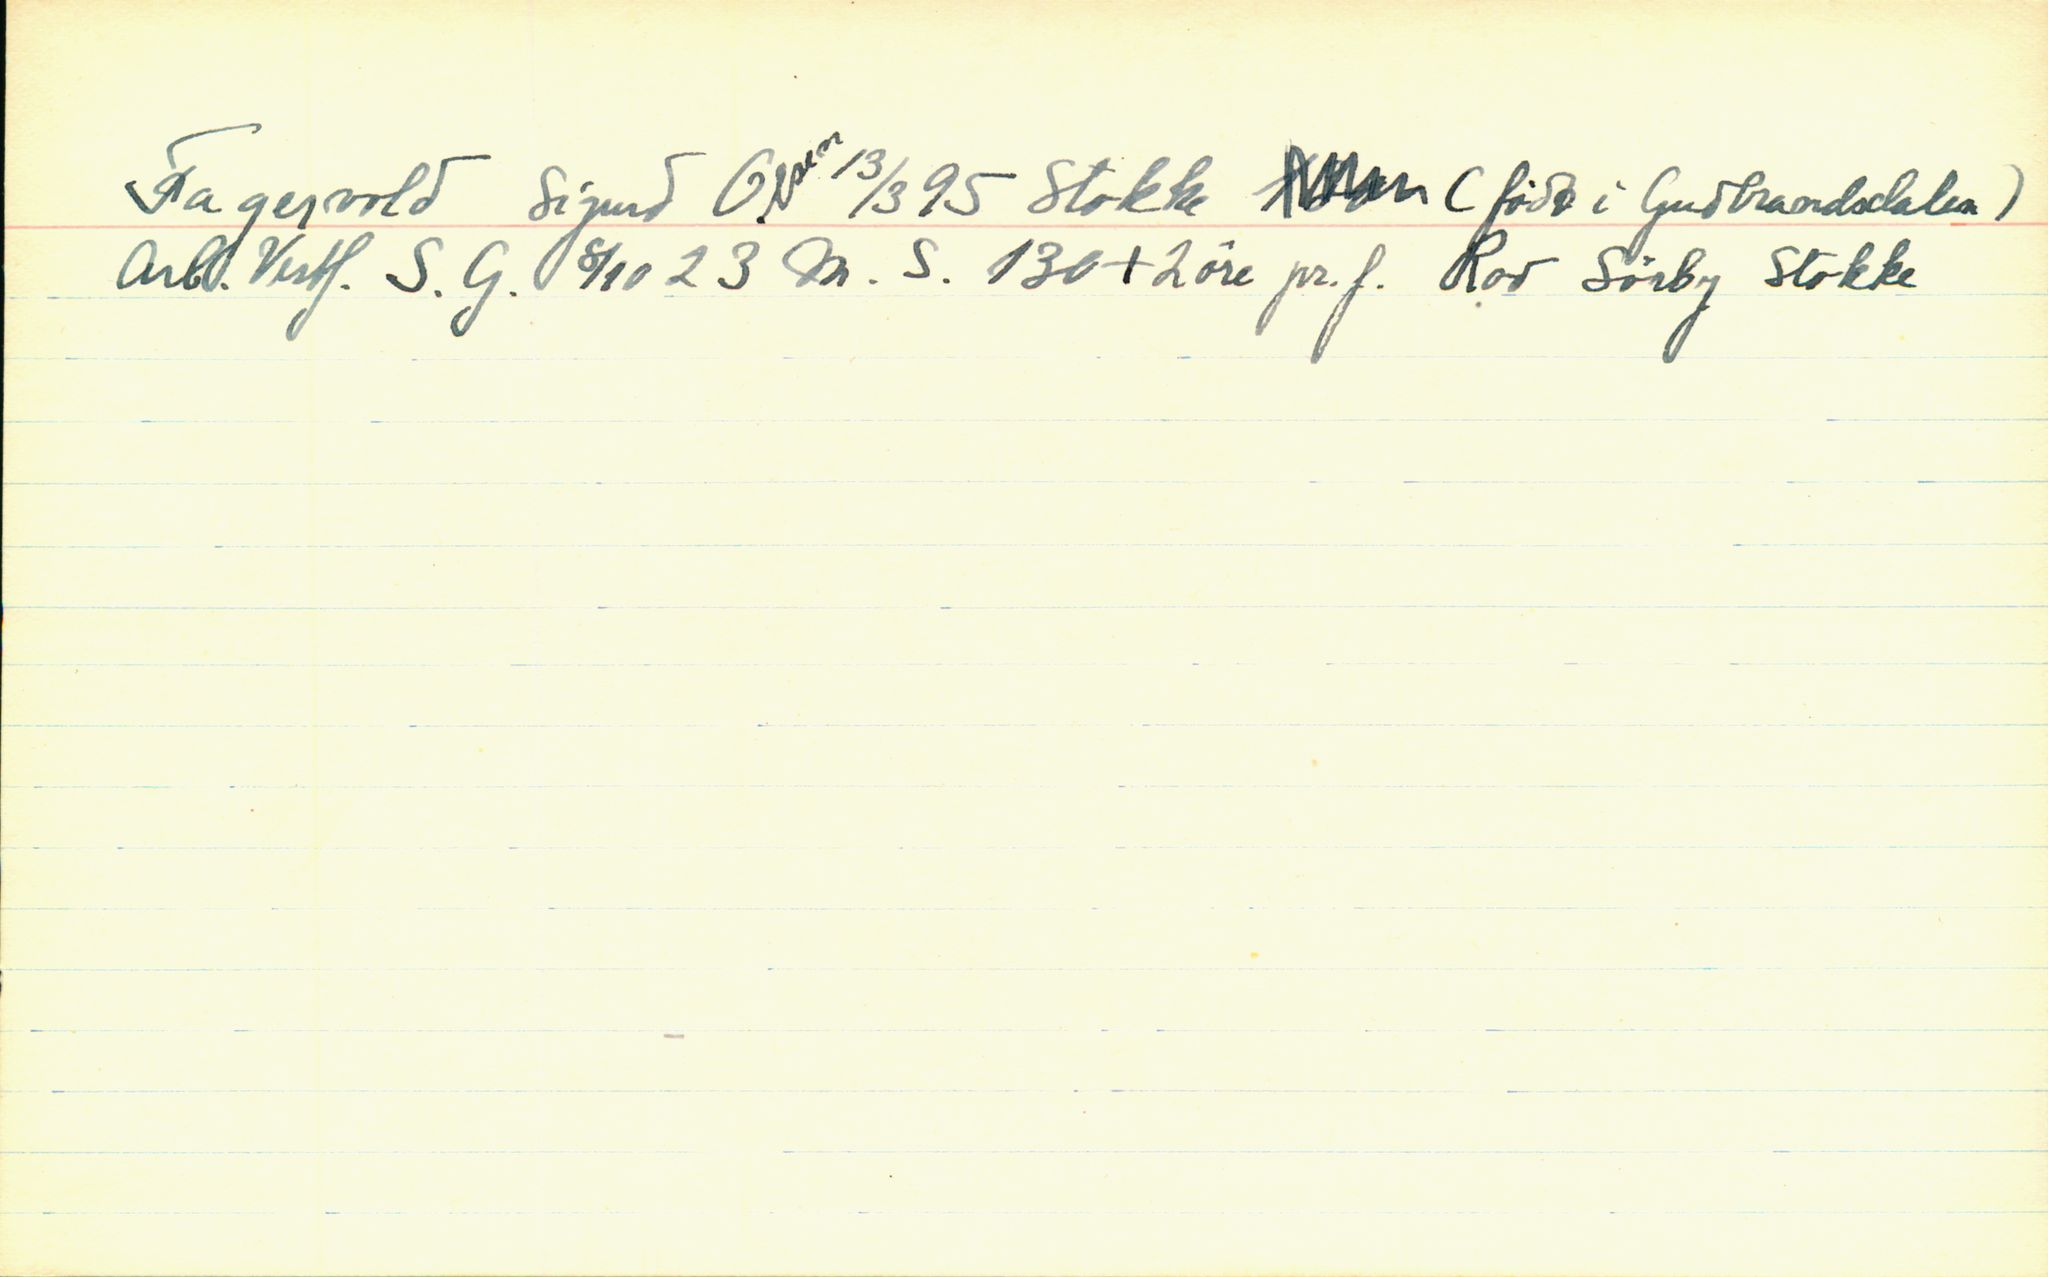 Fagervold Sigurd O. 13/3 95 Stokke (född i Gudbrandsdalen)
Arb. Vestf. S. G. 8/10 23 M. S. 130 + 2 öre pr. f. Rod Sörby Stokke